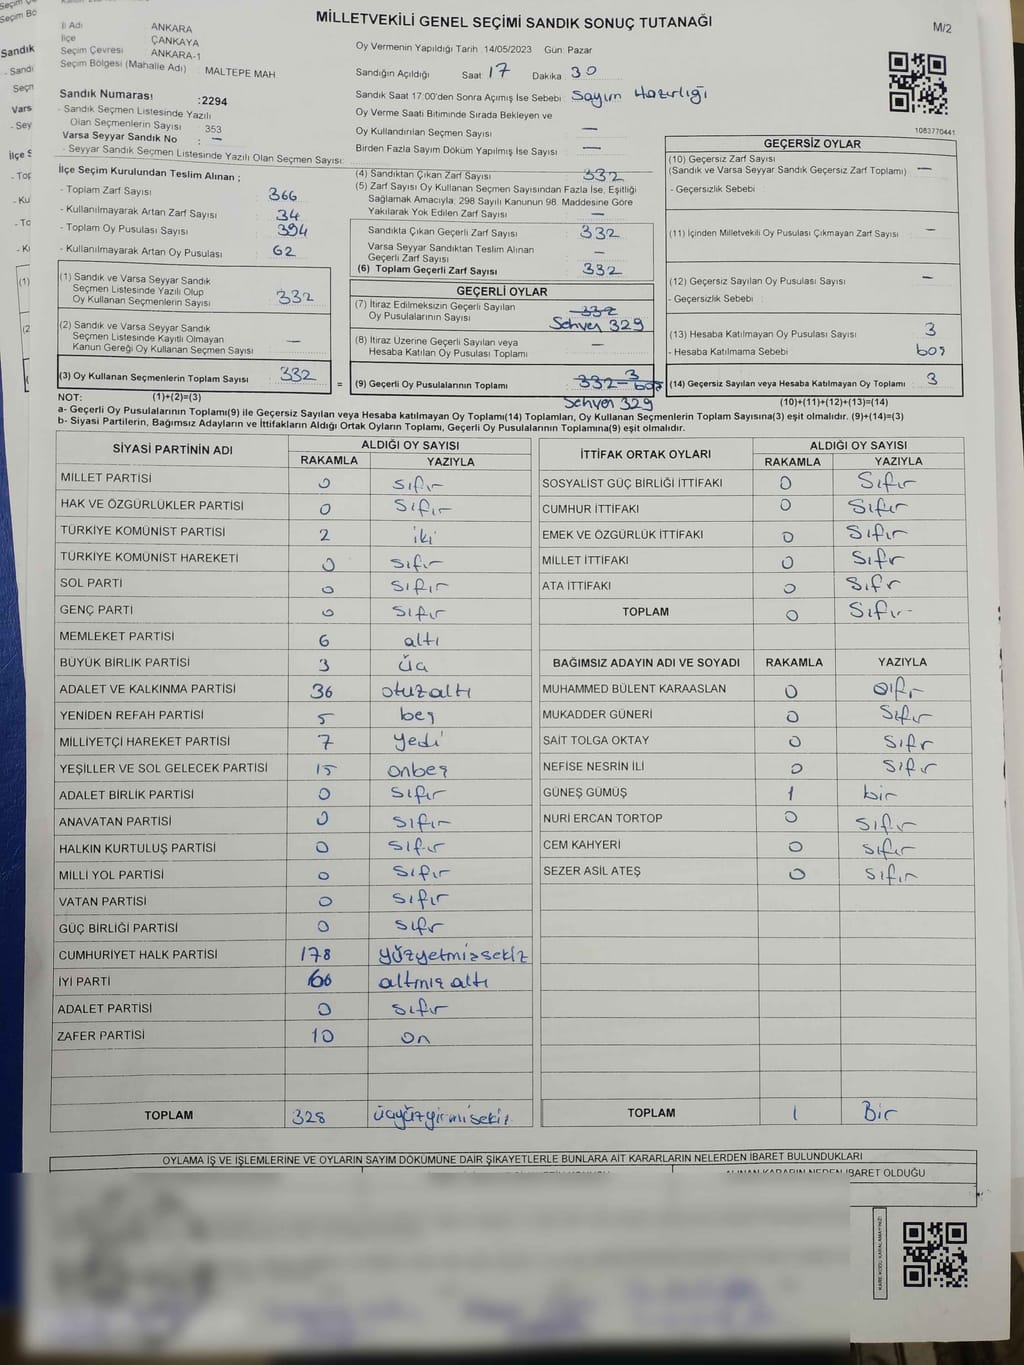 MİLLETVEKİLİ GENEL SEÇİMİ SANDIK SONUÇ TUTANAĞI
M/2
İl Adı ANKARA
İlçe ÇANKAYA
Seçim Çevresi ANKARA-1
Seçim Bölgesi (Mahalle Adı) : MALTEPE MAH
Sandık Numarası :2294
- Sandık Seçmen Listesinde Yazılı
Olan Seçmenlerin Sayısı : 353
Varsa Seyyar Sandık No : —
- Seyyar Sandık Seçmen Listesinde Yazılı Olan Seçmen Sayısı:
Oy Vermenin Yapıldığı Tarih :14/05/2023 Gün: Pazar
Sandığın Açıldığı Saat 17 Dakika 30
Sandık Saat 17:00'den Sonra Açımış İse Sebebi: Sayım Hazırlığı
Oy Verme Saati Bitiminde Sırada Bekleyen ve
Oy Kullandırılan Seçmen Sayısı —
Birden Fazla Sayım Döküm Yapılmış İse Sayısı : —
1083770441
İlçe Seçim Kurulundan Teslim Alınan ;
- Toplam Zarf Sayısı : 366
- Kullanılmayarak Artan Zarf Sayısı : 34
- Toplam Oy Pusulası Sayısı : 394
- Kullanılmayarak Artan Oy Pusulası : 62
(1) Sandık ve Varsa Seyyar Sandık
Seçmen Listesinde Yazılı Olup
Oy Kullanan Seçmenlerin Sayısı : 332
(2) Sandık ve Varsa Seyyar Sandık
Seçmen Listesinde Kayıtlı Olmayan
Kanun Gereği Oy Kullanan Seçmen Sayısı : —
(3) Oy Kullanan Seçmenlerin Toplam Sayısı : 332
(4) Sandıktan Çıkan Zarf Sayısı : 332
(5) Zarf Sayısı Oy Kullanan Seçmen Sayısından Fazla İse, Eşitliği
Sağlamak Amacıyla; 298 Sayılı Kanunun 98. Maddesine Göre
Yakılarak Yok Edilen Zarf Sayısı : —
Sandıkta Çıkan Geçerli Zarf Sayısı : 332
Varsa Seyyar Sandıktan Teslim Alınan
Geçerli Zarf Sayısı : —
(6) Toplam Geçerli Zarf Sayısı : 332
GEÇERLİ OYLAR
(7) İtiraz Edilmeksizin Geçerli Sayılan
Oy Pusulalarının Sayısı : 332
Sehven 329
(8) İtiraz Üzerine Geçerli Sayılan veya
Hesaba Katılan Oy Pusulası Toplamı : —
= (9) Geçerli Oy Pusulalarının Toplamı : 332-3 boş
Sehven 329
GEÇERSİZ OYLAR
(10) Geçersiz Zarf Sayısı
(Sandık ve Varsa Seyyar Sandık Geçersiz Zarf Toplamı) : —
- Geçersizlik Sebebi :
(11) İçinden Milletvekili Oy Pusulası Çıkmayan Zarf Sayısı : —
(12) Geçersiz Sayılan Oy Pusulası Sayısı : —
- Geçersizlik Sebebi :
(13) Hesaba Katılmayan Oy Pusulası Sayısı : 3
- Hesaba Katılmama Sebebi : boş
+ (14) Geçersiz Sayılan veya Hesaba Katılmayan Oy Toplamı : 3
NOT: (1)+(2)=(3)
(10)+(11)+(12)+(13)=(14)
a- Geçerli Oy Pusulalarının Toplamı(9) ile Geçersiz Sayılan veya Hesaba katılmayan Oy Toplamı(14) Toplamları, Oy Kullanan Seçmenlerin Toplam Sayısına(3) eşit olmalıdır. (9)+(14)=(3)
b- Siyasi Partilerin, Bağımsız Adayların ve İttifakların Aldığı Ortak Oyların Toplamı, Geçerli Oy Pusulalarının Toplamına(9) eşit olmalıdır.
SİYASİ PARTİNİN ADI ALDIĞI OY SAYISI
RAKAMLA YAZIYLA
MİLLET PARTİSİ 0 Sıfır
HAK VE ÖZGÜRLÜKLER PARTİSİ 0 Sıfır
TÜRKİYE KOMÜNİST PARTİSİ 2 iki
TÜRKİYE KOMÜNİST HAREKETİ 0 Sıfır
SOL PARTİ 0 Sıfır
GENÇ PARTİ 0 Sıfır
MEMLEKET PARTİSİ 6 altı
BÜYÜK BİRLİK PARTİSİ 3 üç
ADALET VE KALKINMA PARTİSİ 36 otuzaltı
YENİDEN REFAH PARTİSİ 5 beş
MİLLİYETÇİ HAREKET PARTİSİ 7 yedi
YEŞİLLER VE SOL GELECEK PARTİSİ 15 onbeş
ADALET BİRLİK PARTİSİ 0 Sıfır
ANAVATAN PARTİSİ 0 Sıfır
HALKIN KURTULUŞ PARTİSİ 0 Sıfır
MİLLİ YOL PARTİSİ 0 Sıfır
VATAN PARTİSİ 0 Sıfır
GÜÇ BİRLİĞİ PARTİSİ 0 Sıfr
CUMHURİYET HALK PARTİSİ 178 yüzyetmişsekiz
İYİ PARTİ 66 altmış altı
ADALET PARTİSİ 0 Sıfır
ZAFER PARTİSİ 10 on
TOPLAM 328 üçyüzyirmisekiz
İTTİFAK ORTAK OYLARI ALDIĞI OY SAYISI
RAKAMLA YAZIYLA
SOSYALİST GÜÇ BİRLİĞİ İTTİFAKI 0 Sıfır
CUMHUR İTTİFAKI 0 Sıfır
EMEK VE ÖZGÜRLÜK İTTİFAKI 0 Sıfır
MİLLET İTTİFAKI 0 Sıfr
ATA İTTİFAKI 0 Sıfr
TOPLAM 0 Sıfır
BAĞIMSIZ ADAYIN ADI VE SOYADI RAKAMLA YAZIYLA
MUHAMMED BÜLENT KARAASLAN 0 Sıfır
MUKADDER GÜNERİ 0 Sıfır
SAİT TOLGA OKTAY 0 Sıfr
NEFİSE NESRİN İLİ 0 Sıfır
GÜNEŞ GÜMÜŞ 1 bir
NURİ ERCAN TORTOP 0 Sıfır
CEM KAHYERİ 0 Sıfır
SEZER ASİL ATEŞ 0 Sıfır
TOPLAM 1 Bir
OYLAMA İŞ VE İŞLEMLERİNE VE OYLARIN SAYIM DÖKÜMÜNE DAİR ŞİKAYETLERLE BUNLARA AİT KARARLARIN NELERDEN İBARET BULUNDUKLARI
ALINAN KARARIN NEDEN İBARET OLDUĞU
KARE KODU KARALAMAYINIZ!